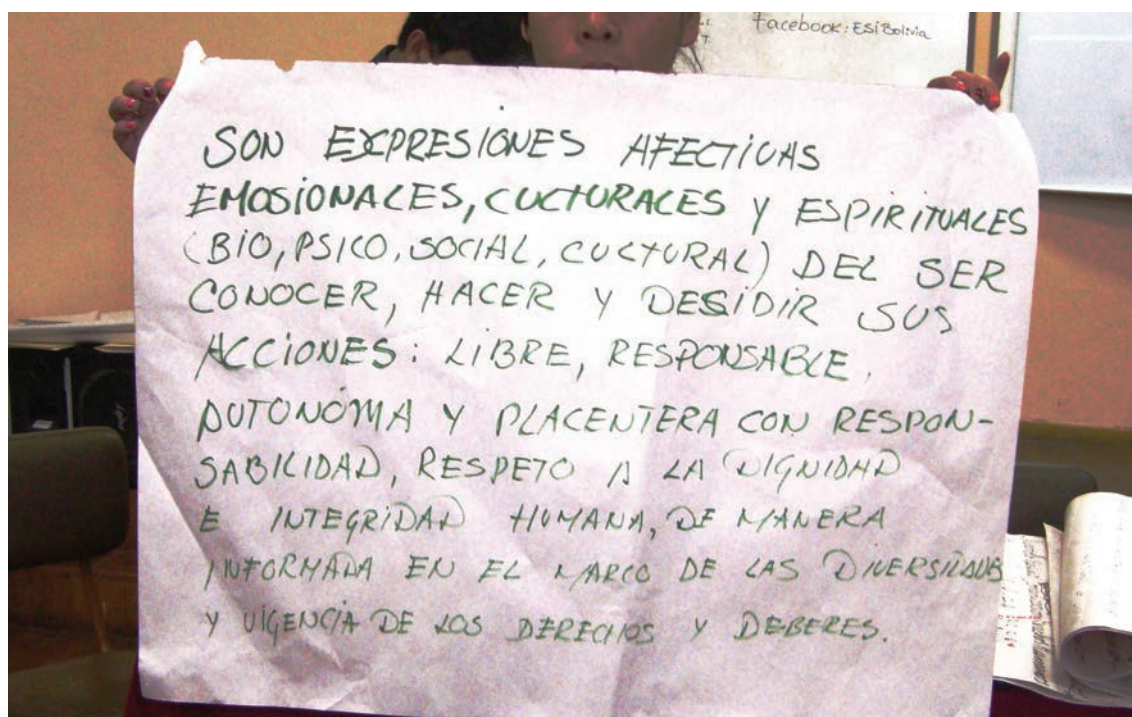 Facebook: ESi Bolivia
SON EXPRESIONES AFECTIVAS
EMOSIONALES, CULTURALES Y ESPIRITUALES
(BIO, PSICO, SOCIAL, CULTURAL) DEL SER
CONOCER, HACER Y DESIDIR SUS
ACCIONES: LIBRE, RESPONSABLE,
AUTONOMA Y PLACENTERA CON RESPON-
SABILIDAD, RESPETO A LA DIGNIDAD
E INTEGRIDAD HUMANA, DE MANERA
INFORMADA EN EL MARCO DE LAS DIVERSIDADES
Y VIGENCIA DE LOS DERECHOS Y DEBERES.